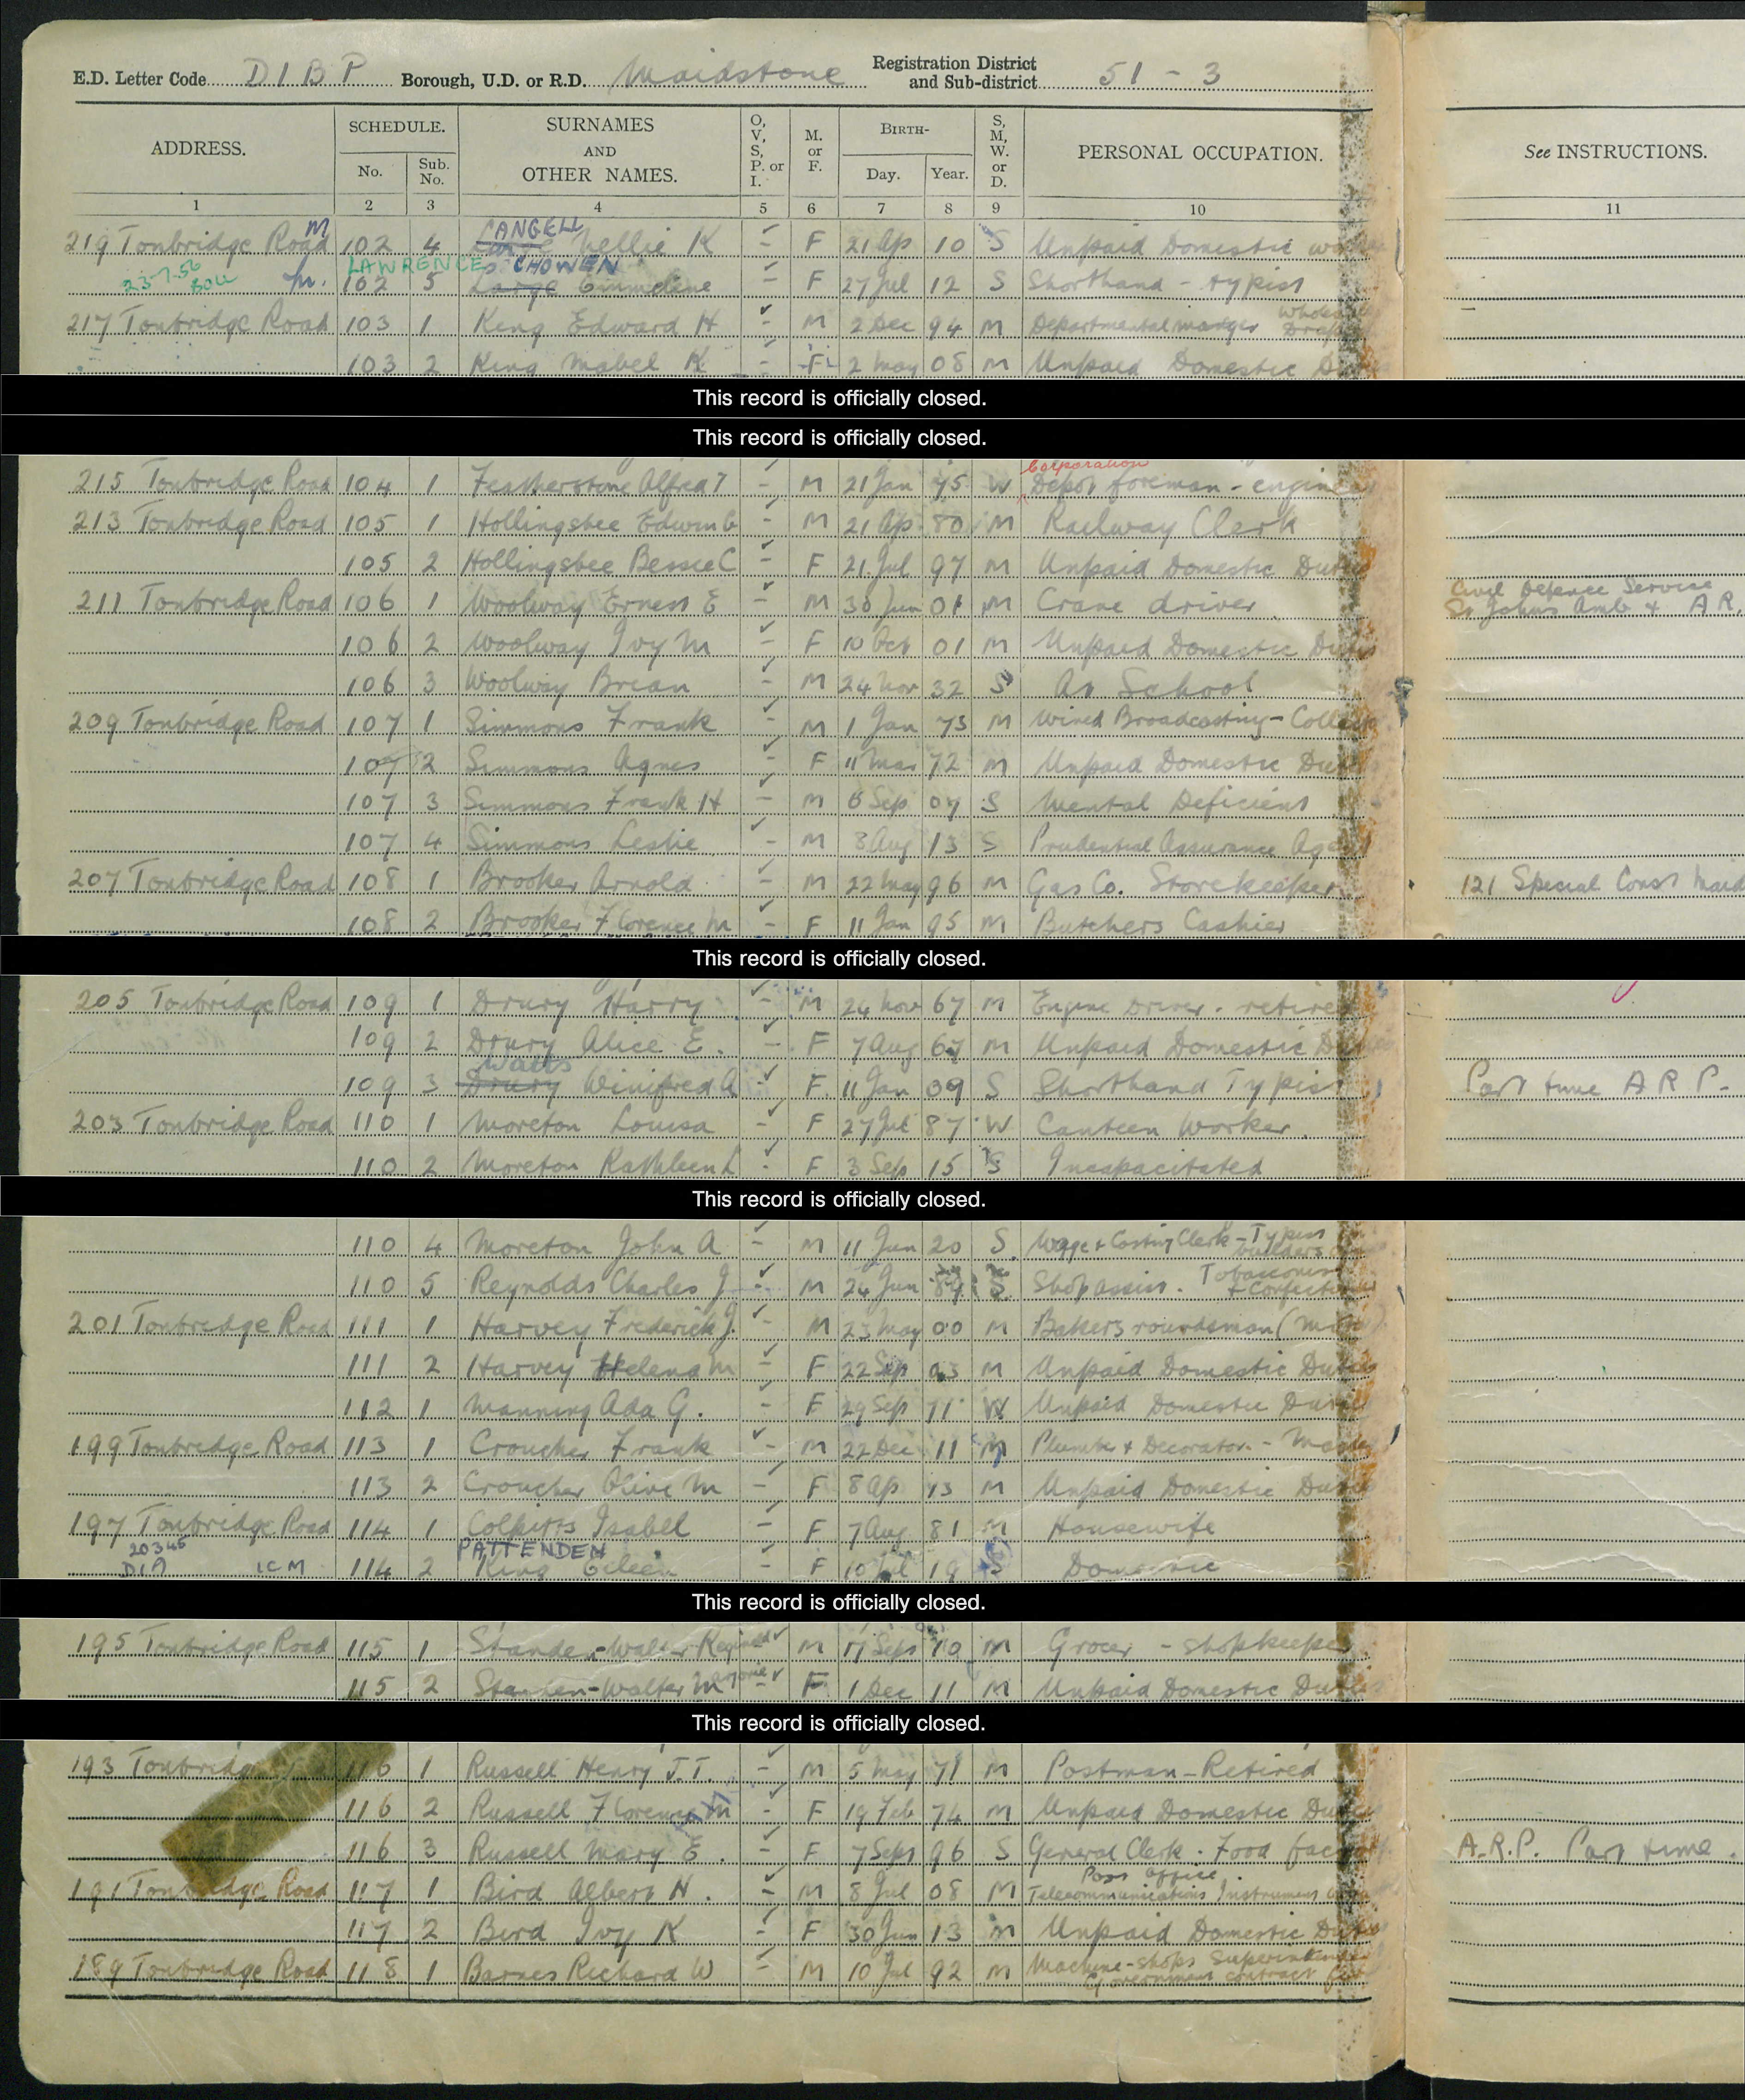 E.D. Letter Code DIBP Borough, U.D. or R.D. Maidstone Registration District and Sub-district 51 - 3
ADDRESS. SCHEDULE. No. Sub. No. SURNAMES AND OTHER NAMES. O, V, S, P. or I. M. or F. BIRTH- Day. Year. S, M, W. or D. PERSONAL OCCUPATION. See INSTRUCTIONS.
1 2 3 4 5 6 7 8 9 10 11
M CANGELL
219 Tonbridge Road 102 4 Nellie K - F 21 Ap 10 S Unpaid Domestic
LAWRENCE CHOWEN
23-7-56 M. 102 5 Large Emmeline - F 27 Jul 12 S Shorthand - typist
217 Tonbridge Road 103 1 King Edward H - M 2 Dec 94 M Departmental manager
103 2 King Mabel K - F 2 May 08 M Unpaid Domestic
This record is officially closed.
This record is officially closed.
Corporation
215 Tonbridge Road 104 1 Featherstone Alfred T - M 21 Jan 75 W Depot foreman - engineer
213 Tonbridge Road 105 1 Hollingsbee Edwin G - M 21 Ap 80 M Railway Clerk
105 2 Hollingsbee Bessie C - F 21 Jul 97 M Unpaid Domestic Duties
Civil Defence Service
211 Tonbridge Road 106 1 Woolway Ernest E - M 30 Jun 01 M Crane driver St Johns Amb + A R.
106 2 Woolway Ivy M - F 10 Oct 01 M Unpaid Domestic Duties
106 3 Woolway Brian - M 24 Nov 32 S At School
209 Tonbridge Road 107 1 Simmons Frank - M 1 Jan 73 M Wired Broadcasting -
107 2 Simmons Agnes - F 11 Mar 72 M Unpaid Domestic Duties
107 3 Simmons Frank H - M 6 Sep 07 S Mental Deficient
107 4 Simmons Leslie - M 3 Aug 13 S Prudential Assurance Agent
207 Tonbridge Road 108 1 Brooker Arnold - M 22 May 96 M Gas Co. Storekeeper 121 Special Const Maid
108 2 Brooker Florence M - F 11 Jan 95 M Butchers Cashier
This record is officially closed.
205 Tonbridge Road 109 1 Drury Harry - M 24 Nov 67 M Engine Driver - retired
109 2 Drury Alice E. - F 7 Aug 67 M Unpaid Domestic
Watts
109 3 Drury Winifred A - F 11 Jan 09 S Shorthand Typist Part time A R P.
203 Tonbridge Road 110 1 Moreton Louisa - F 27 Jul 87 W Canteen Worker.
110 2 Moreton Kathleen L - F 3 Sep 15 S Incapacitated
This record is officially closed.
110 4 Moreton John A - M 11 Jun 20 S. Wage + Costing Clerk - Typist builders
110 5 Reynolds Charles J - M 24 Jun 84 S Shop assist. Tobacconist + Confectioner
201 Tonbridge Road 111 1 Harvey Frederick J. - M 23 May 00 M Bakers roundsman
111 2 Harvey Helena M - F 22 Sep 03 M Unpaid Domestic Duties
112 1 Manning Ada G. - F 29 Sep 71 W Unpaid Domestic Duties
199 Tonbridge Road 113 1 Croucher Frank - M 22 Dec 11 M Plumber + Decorator - Master
113 2 Croucher Olive M - F 8 Ap 13 M Unpaid Domestic Duties
197 Tonbridge Road 114 1 Colpitts Isabel - F 7 Aug 81 M Housewife
20345 PATTENDEN
DIA ICM 114 2 King Eileen - F 10 Jul 19 S Domestic
This record is officially closed.
195 Tonbridge Road 115 1 Standen-Walter Reginald - M 17 Sep 10 M Grocer - shopkeeper
115 2 Standen-Walter Marjorie - F 1 Dec 11 M Unpaid Domestic Duties
This record is officially closed.
193 Tonbridge 116 1 Russell Henry J.T. - M 5 May 71 M Postman - Retired
116 2 Russell Florence M - F 19 Feb 74 M Unpaid Domestic Duties
116 3 Russell Mary E. - F 7 Sep 96 S General Clerk - Food factory A.R.P. Part time.
Post Office
191 Tonbridge Road 117 1 Bird Albert N. - M 8 Jul 08 M Telecommunications Instrument
117 2 Bird Ivy K - F 30 Jun 13 M Unpaid Domestic Duties
189 Tonbridge Road 118 1 Barnes Richard W - M 10 Jul 92 M Machine-shops Superintendent
Government contract